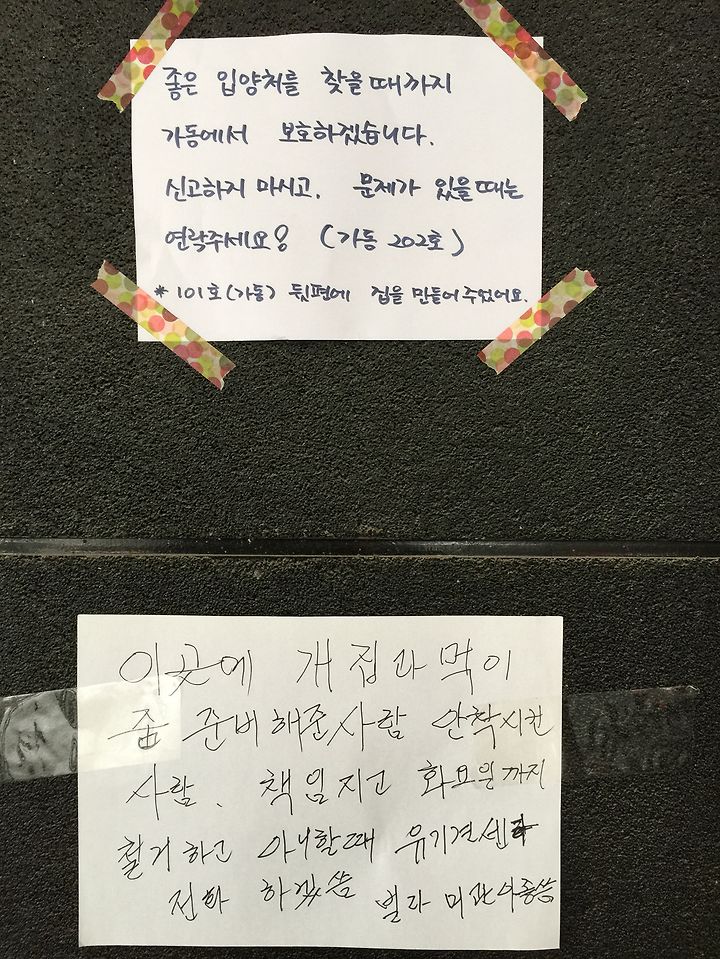 좋은 입양처를 찾을때까지
가동에서 보호하겠습니다.
신고하지 마시고, 문제가 있을때는
연락주세요! (가동 202호)
* 101호(가동) 뒷편에 집을 만들어 주었어요.
이곳에 개집과 먹이
좀 준비해준사람 안착시킨
사람. 책임지고 화요일까지
철거하고 아니할때 유기견센타
전화 하겠씀 빌라 미관 안좋씀